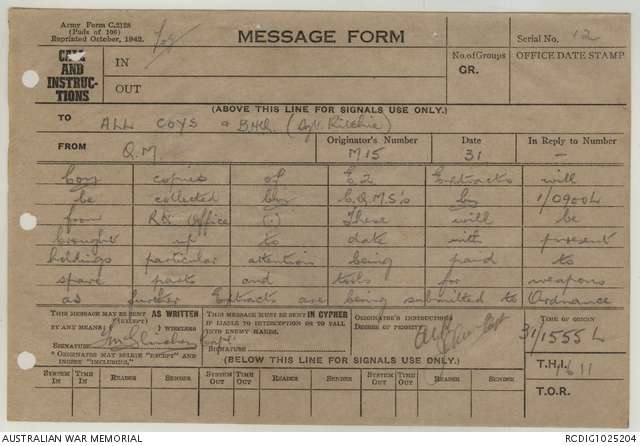 Army Form C.2128
(Pads of 100)
Reprinted October, 1942.
Log
MESSAGE FORM
Serial No. 12
CALL
AND
INSTRUC-
TIONS
IN
OUT
No. of Groups
GR.
OFFICE DATE STAMP
(ABOVE THIS LINE FOR SIGNALS USE ONLY.)
TO ALL COYS & BHQ. (Sgt. Ritchie)
FROM Q.M. Originator's Number M15 Date 31 In Reply to Number –
Coy copies of E2 Extracts will
be collected by C.Q.M.S's by 1/0900L
from RQ Office (.) These will be
brought up to date with present
holdings particular attention being paid to
spare parts and tools for weapons
as further Extracts are being submitted to Ordnance
THIS MESSAGE MAY BE SENT AS WRITTEN
(EXCEPT)
BY ANY MEANS ( ) WIRELESS
SIGNATURE
* ORIGINATOR MAY ERASE "EXCEPT" AND
INSERT "INCLUDING."
THIS MESSAGE MUST BE SENT IN CYPHER
IF LIABLE TO INTERCEPTION OR TO FALL
INTO ENEMY HANDS.
SIGNATURE
ORIGINATOR'S INSTRUCTIONS
DEGREE OF PRIORITY
TIME OF ORIGIN
31/1555 L
T.H.I. 1611
T.O.R.
(BELOW THIS LINE FOR SIGNALS USE ONLY.)
SYSTEM IN TIME IN READER SENDER SYSTEM OUT TIME OUT READER SENDER SYSTEM OUT TIME OUT READER SENDER
AUSTRALIAN WAR MEMORIAL RCDIG1025204